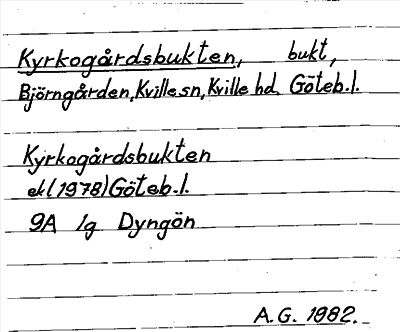 Kyrkogårdsbukten, bukt,
Björngården, Kville sn, Kville hd, Göteb.l.
Kyrkogårdsbukten
ek (1978) Göteb.l.
9A 1g Dyngön
A.G. 1982.